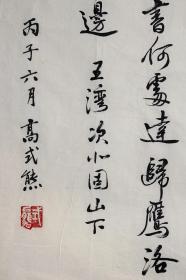 書何處達歸鴈洛
邊 王灣次北固山下
丙子六月高式熊
式熊